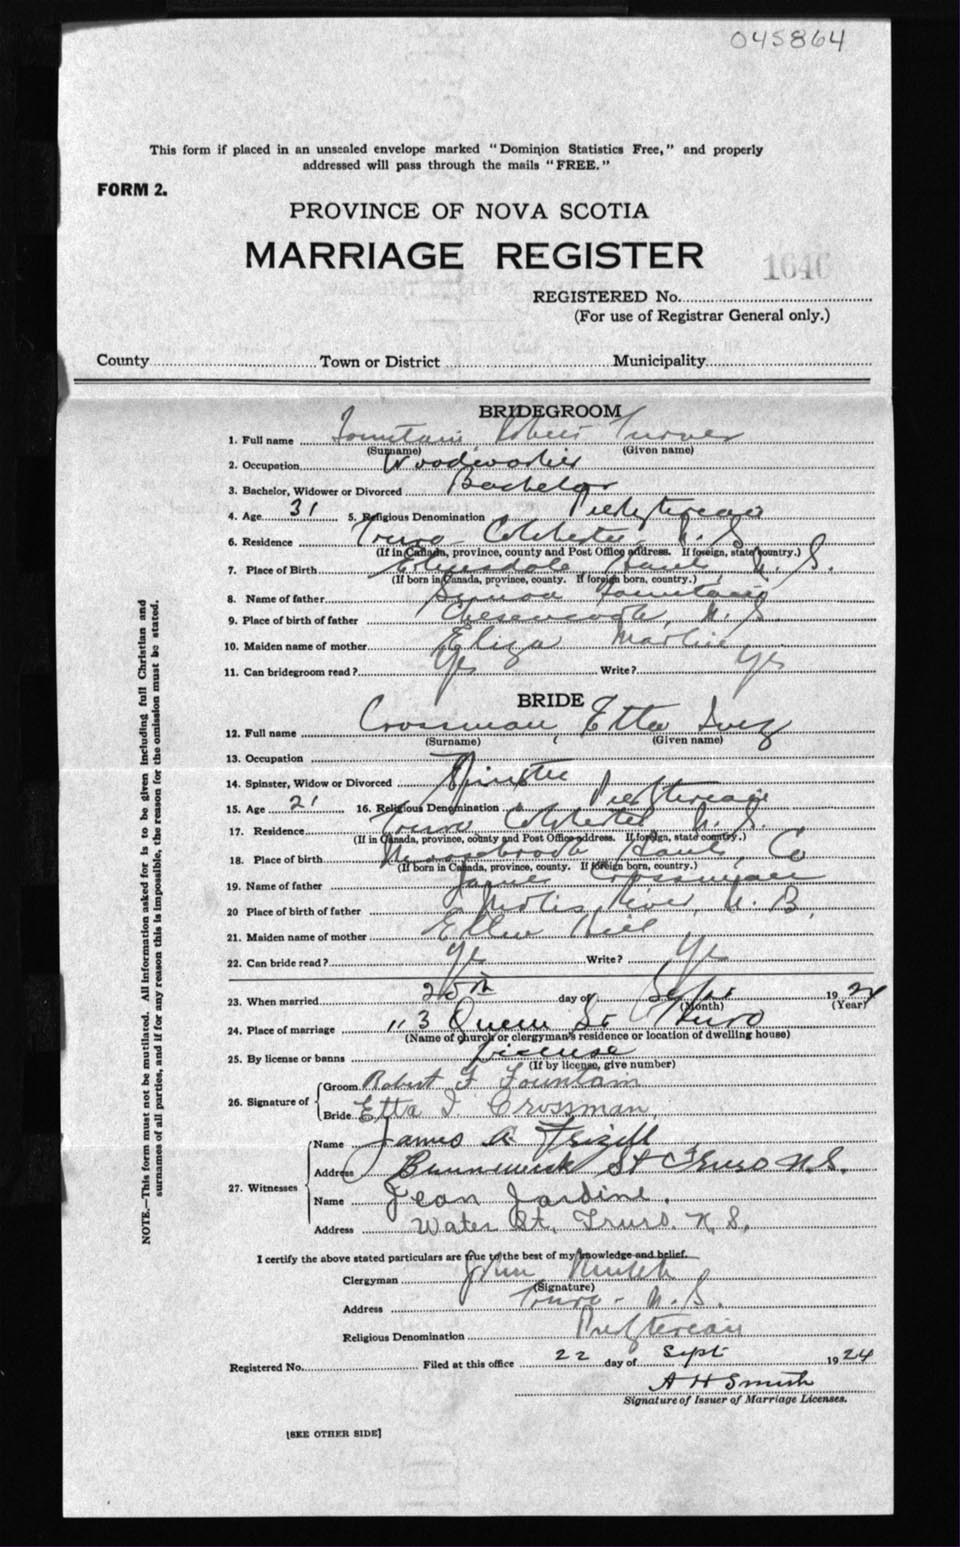 045864
This form if placed in an unsealed envelope marked "Dominion Statistics Free," and properly
addressed will pass through the mails "FREE."
FORM 2.
PROVINCE OF NOVA SCOTIA
MARRIAGE REGISTER
1646
REGISTERED No.
(For use of Registrar General only.)
County Town or District Municipality
BRIDEGROOM
1. Full name Fountain, Robert Turner
(Surname) (Given name)
2. Occupation Woodworker
3. Bachelor, Widower or Divorced Bachelor
4. Age 31 5. Religious Denomination Presbyterian
6. Residence Truro Colchester N. S.
(If in Canada, province, county and Post Office address. If foreign, state country.)
7. Place of Birth Elmsdale, Hants, N. S.
(If born in Canada, province, county. If foreign born, country.)
8. Name of father Fountain
9. Place of birth of father N. S.
10. Maiden name of mother Eliza Martin
11. Can bridegroom read? Yes Write? Yes
BRIDE
12. Full name Crossman, Etta Inez
(Surname) (Given name)
13. Occupation
14. Spinster, Widow or Divorced Spinster
15. Age 21 16. Religious Denomination Presbyterian
17. Residence Truro Colchester N. S.
(If in Canada, province, county and Post Office address. If foreign, state country.)
18. Place of birth Noosebrook Hants, Co
(If born in Canada, province, county. If foreign born, country.)
19. Name of father James Crossman
20 Place of birth of father River, N. B.
21. Maiden name of mother Ellen
22. Can bride read? Yes Write? Yes
23. When married 25th day of Sept 1924
(Month) (Year)
24. Place of marriage 113 Queen St Truro
(Name of church or clergyman's residence or location of dwelling house)
25. By license or banns License
(If by license, give number)
26. Signature of
Groom Robert T Fountain
Bride Etta I Crossman,
27. Witnesses
Name James A Frizell
Address Brunswick St Truro N.S.
Name Jean Jardine.
Address Water St, Truro. N.S,
I certify the above stated particulars are true to the best of my knowledge and belief.
Clergyman John
(Signature)
Address Truro - N. S.
Religious Denomination Presbyterian
Registered No. Filed at this office 22 day of Sept 1924
A H Smith
Signature of Issuer of Marriage Licenses.
[SEE OTHER SIDE]
NOTE.—This form must not be mutilated. All information asked for is to be given including full Christian and
surnames of all parties, and if for any reason this is impossible, the reason for the omission must be stated.